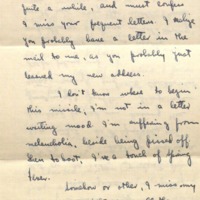 quite a while, and must confess
I miss your frequent letters. I realize
you probably have a letter in the
mail to me, as you probably just
received my new address.
I don't know where to begin
this missile, I'm not in a letter
writing mood I'm suffering from
melancholia, besides being pissed off
then to boot, I've a touch of Spring
fever.
Somehow or other, I miss my